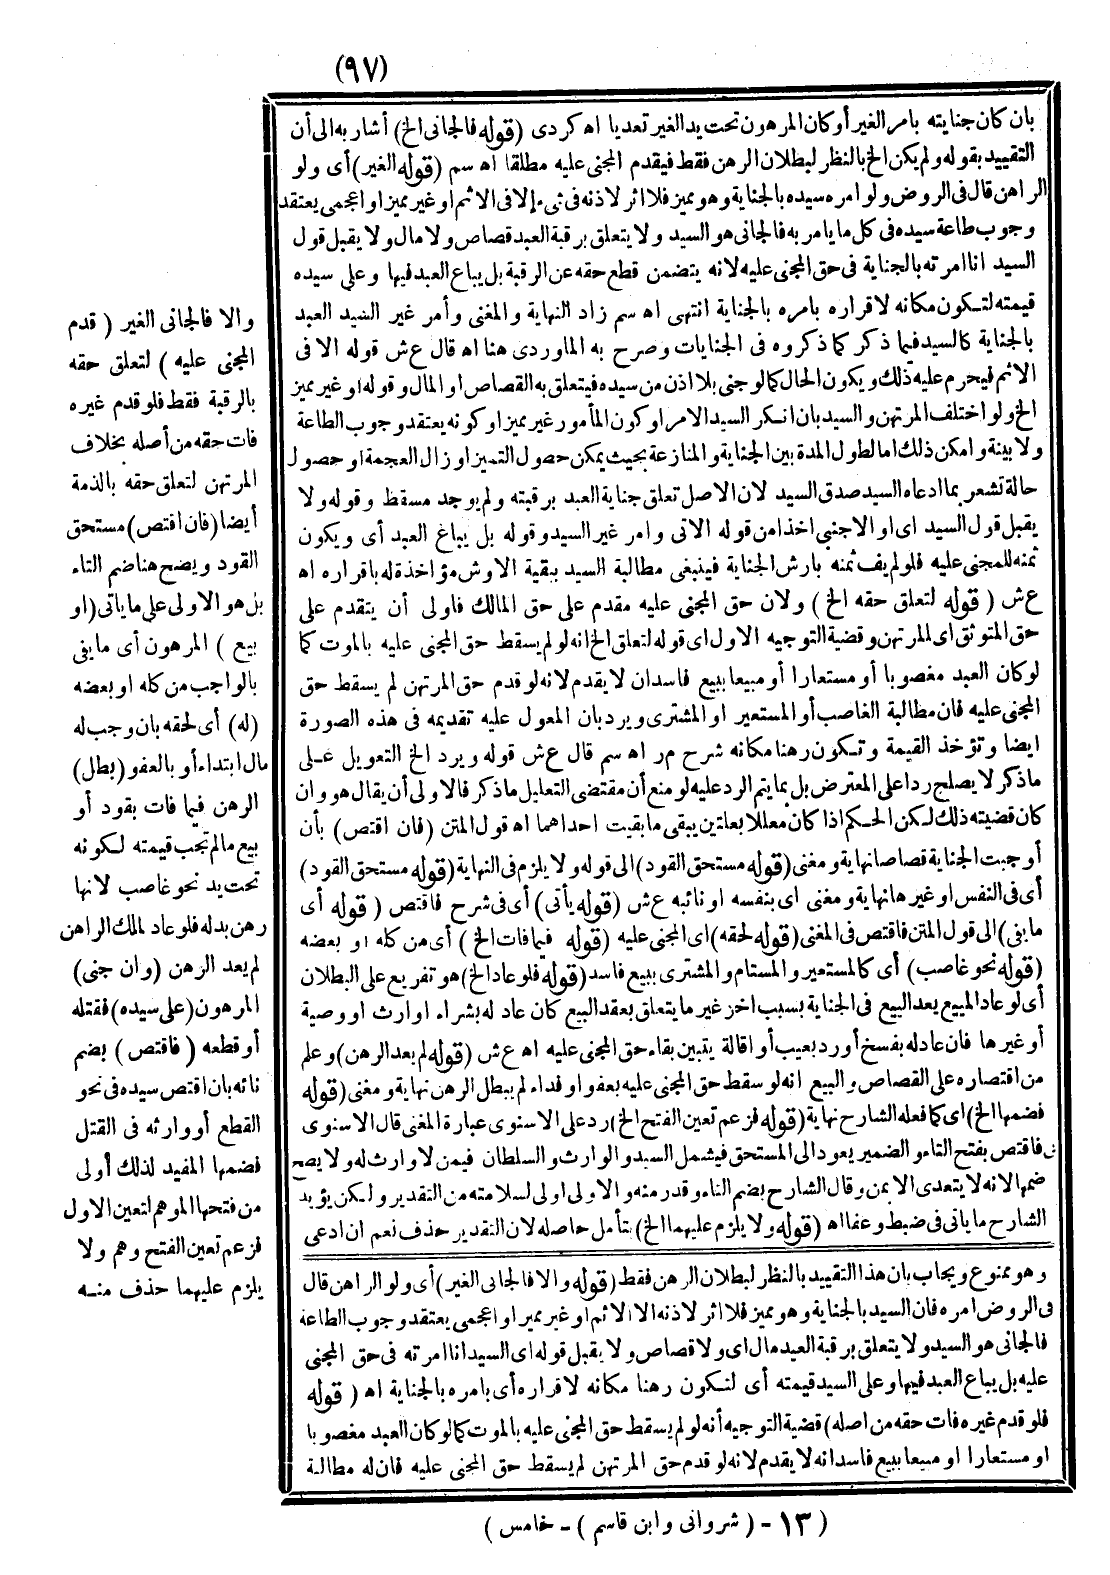 (٩٧)
بان كان جنايته بامر الغير أو كان المرهون تحت يد الغير تعديا اه كردى (قوله فالجانى الخ) أشار به الى أن
التقييد بقوله ولم يكن الخ بالنظر لبطلان الرهن فقط فيقدم المجنى عليه مطلقا اه سم (قوله الغير) أى ولو
الراهن قال فى الروض ولو امره سيده بالجناية وهو مميز فلا اثر لاذنه فى شىء إلا فى الاثم او غير مميز او اعجمى يعتقد
وجوب طاعة سيده فى كل ما يامر به فالجانى هو السيد ولا يتعلق برقبة العبد قصاص ولا مال ولا يقبل قول
السيد انا امرته بالجناية فى حق المجنى عليه لانه يتضمن قطع حقه عن الرقبة بل يباع العبد فيها وعلى سيده
قيمته لتكون مكانه لاقراره بامره بالجناية انتهى اه سم زاد النهاية والمغنى وأمر غير السيد العبد
بالجناية كالسيد فيما ذكر كما ذكروه فى الجنايات وصرح به الماوردى هنا اه قال ع ش قوله الا فى
الاثم فيحرم عليه ذلك ويكون الحال كما لو جنى بلا اذن من سيده فيتعلق به القصاص او المال وقوله او غير مميز
الخ ولو اختلف المرتهن والسيد بان انكر السيد الامر او كون المأمور غير مميز او كونه يعتقد وجوب الطاعة
ولا بينة وامكن ذلك اما لطول المدة بين الجناية والمنازعة بحيث يمكن حصول التميز او زال العجمة او حصول
حالة تشعر بما ادعاه السيد صدق السيد لان الاصل تعلق جناية العبد برقبته ولم يوجد مسقظ وقوله ولا
يقبل قول السيد اى او الاجنبى اخذا من قوله الاتى وامر غير السيد وقوله بل يباغ العبد أى ويكون
ثمنه للمجنى عليه فلو لم يف ثمنه بارش الجناية فينبغى مطالبة السيد ببقية الاوش مؤاخذة له باقراره اه
ع ش (قوله لتعلق حقه الخ) ولان حق المجنى عليه مقدم على حق المالك فاولى أن يتقدم على
حق المتوثق اى المرتهن وقضية التوجيه الاول اى قوله لتعلق الخ انه لو لم يسقط حق المجنى عليه بالموت كما
لو كان العبد مغصوبا أو مستعارا أو مبيعا ببيع فاسد ان لا يقدم لانه لو قدم حق المرتهن لم يسقط حق
المجنى عليه فان مطالبة الغاصب أو المستعير او المشترى ويرد بان المعول عليه تقديمه فى هذه الصورة
ايضا وتؤخذ القيمة وتكون رهنا مكانه شرح م ر اه سم قال ع ش قوله ويرد الخ التعويل على
ما ذكر لا يصلح ردا على المعترض بل بما يتم الرد عليه لو منع أن مقتضى التعليل ما ذكر فالاولى أن يقال هو وان
كان قضيته ذلك لكن الحكم اذا كان معللا بعلتين يبقى ما بقيت احداهما اه قول المتن (فان اقتص) بأن
أوجبت الجناية قصاصا نهاية ومغنى (قوله مستحق القود) الى قوله ولا يلزم فى النهاية (قوله مستحق القود)
أى فى النفس او غيرها نهاية ومغنى اى بنفسه او نائبه ع ش (قوله يأتى) أى فى شرح فاقتص (قوله أى
ما يفى) الى قول المتن فاقتص فى المغنى (قوله لحقه) اى المجنى عليه (قوله فيما فات الخ) أى من كله او بعضه
(قوله نحو غاصب) أى كالمستعير والمستام والمشترى ببيع فاسد (قوله فلو عاد الخ) هو تفريع على البطلان
أى لو عاد المبيع بعد البيع فى الجناية بسبب اخر غير ما يتعلق بعقد البيع كان عاد له بشراء او ارث او وصية
أو غيرها فان عاد له بفسخ أو رد بعيب أو اقالة يتبين بقاء حق المجنى عليه اه ع ش (قوله لم يعد الرهن) وعلم
من اقتصاره على القصاص والبيع انه لو سقط حق المجنى عليه بعفو او فداء لم يبطل الرهن نهاية ومغنى (قوله
فضمها الخ) اى كما فعله الشارح نهاية (قوله فزعم تعين الفتح الخ) رد على الاسنوى عبارة المغنى قال الاسنوى
فاقتص بفتح التاء والضمير يعود الى المستحق فيشمل السيد والوارث والسلطان فيمن لا وارث له ولا يصح
ضمها لانه لا يتعدى الا بمن وقال الشارح بضم التاء وقدر منه والاولى اولى لسلامته من التقدير ولكن يؤيد
الشارح ما يأتى فى ضبط وعفا اه (قوله ولا يلزم عليهما الخ) يتأمل حاصله لان التقدير حذف نعم ان ادعى
وهو ممنوع ويجاب بان هذا التقييد بالنظر لبطلان الرهن فقط (قوله والا فالجانى الغير) أى ولو الراهن قال
فى الروض امره فان السيد بالجناية وهو مميز فلا اثر لاذنه الا الاثم او غير مميز او اعجمى يعتقد وجوب الطاعة
فالجانى هو السيد ولا يتعلق برقبة العبد مال اى ولا قصاص ولا يقبل قوله اى السيد انا امرته فى حق المجنى
عليه بل يباع العبد فيها وعلى السيد قيمته أى لتكون رهنا مكانه لاقراره أى بامره بالجناية اه (قوله
فلو قدم غيره فات حقه من اصله) قضية التوجيه أنه لو لم يسقط حق المجنى عليه بالموت كما لو كان العبد مغصوبا
او مستعارا او مبيعا ببيع فاسد انه لا يقدم لانه لو قدم حق المرتهن لم يسقط حق المجنى عليه فان له مطالبة
والا فالجانى الغير (قدم
المجنى عليه) لتعلق حقه
بالرقبة فقط فلو قدم غيره
فات حقه من أصله بخلاف
المرتهن لتعلق حقه بالذمة
أيضا (فان اقتص) مستحق
القود ويضح هنا ضم التاء
بل هو الاولى على ما ياتى (او
بيع) المرهون أى ما يفى
بالواجب من كله او بعضه
(له) أى لحقه بان وجب له
مال ابتداء أو بالعفو (بطل)
الرهن فيما فات بقود أو
بيع ما لم تجب قيمته لكونه
تحت يد نحو غاصب لانها
رهن بدله فلو عاد لملك الراهن
لم يعد الرهن (وان جنى)
المرهون (على سيده) فقتله
أو قطعه (فاقتص) بضم
تائه بان اقتص سيده فى نحو
القطع أو وارثه فى القتل
فضمها المفيد لذلك أولى
من فتحها الموهم لتعين الاول
فزعم تعين الفتح وهم ولا
يلزم عليهما حذف منه
(١٣ - (شروانى وابن قاسم) - خامس)